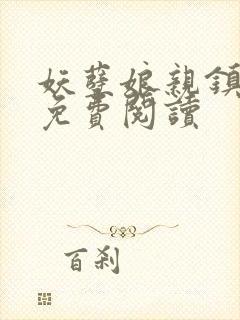 妖孽娘親鎮
免費閱讀
百剎